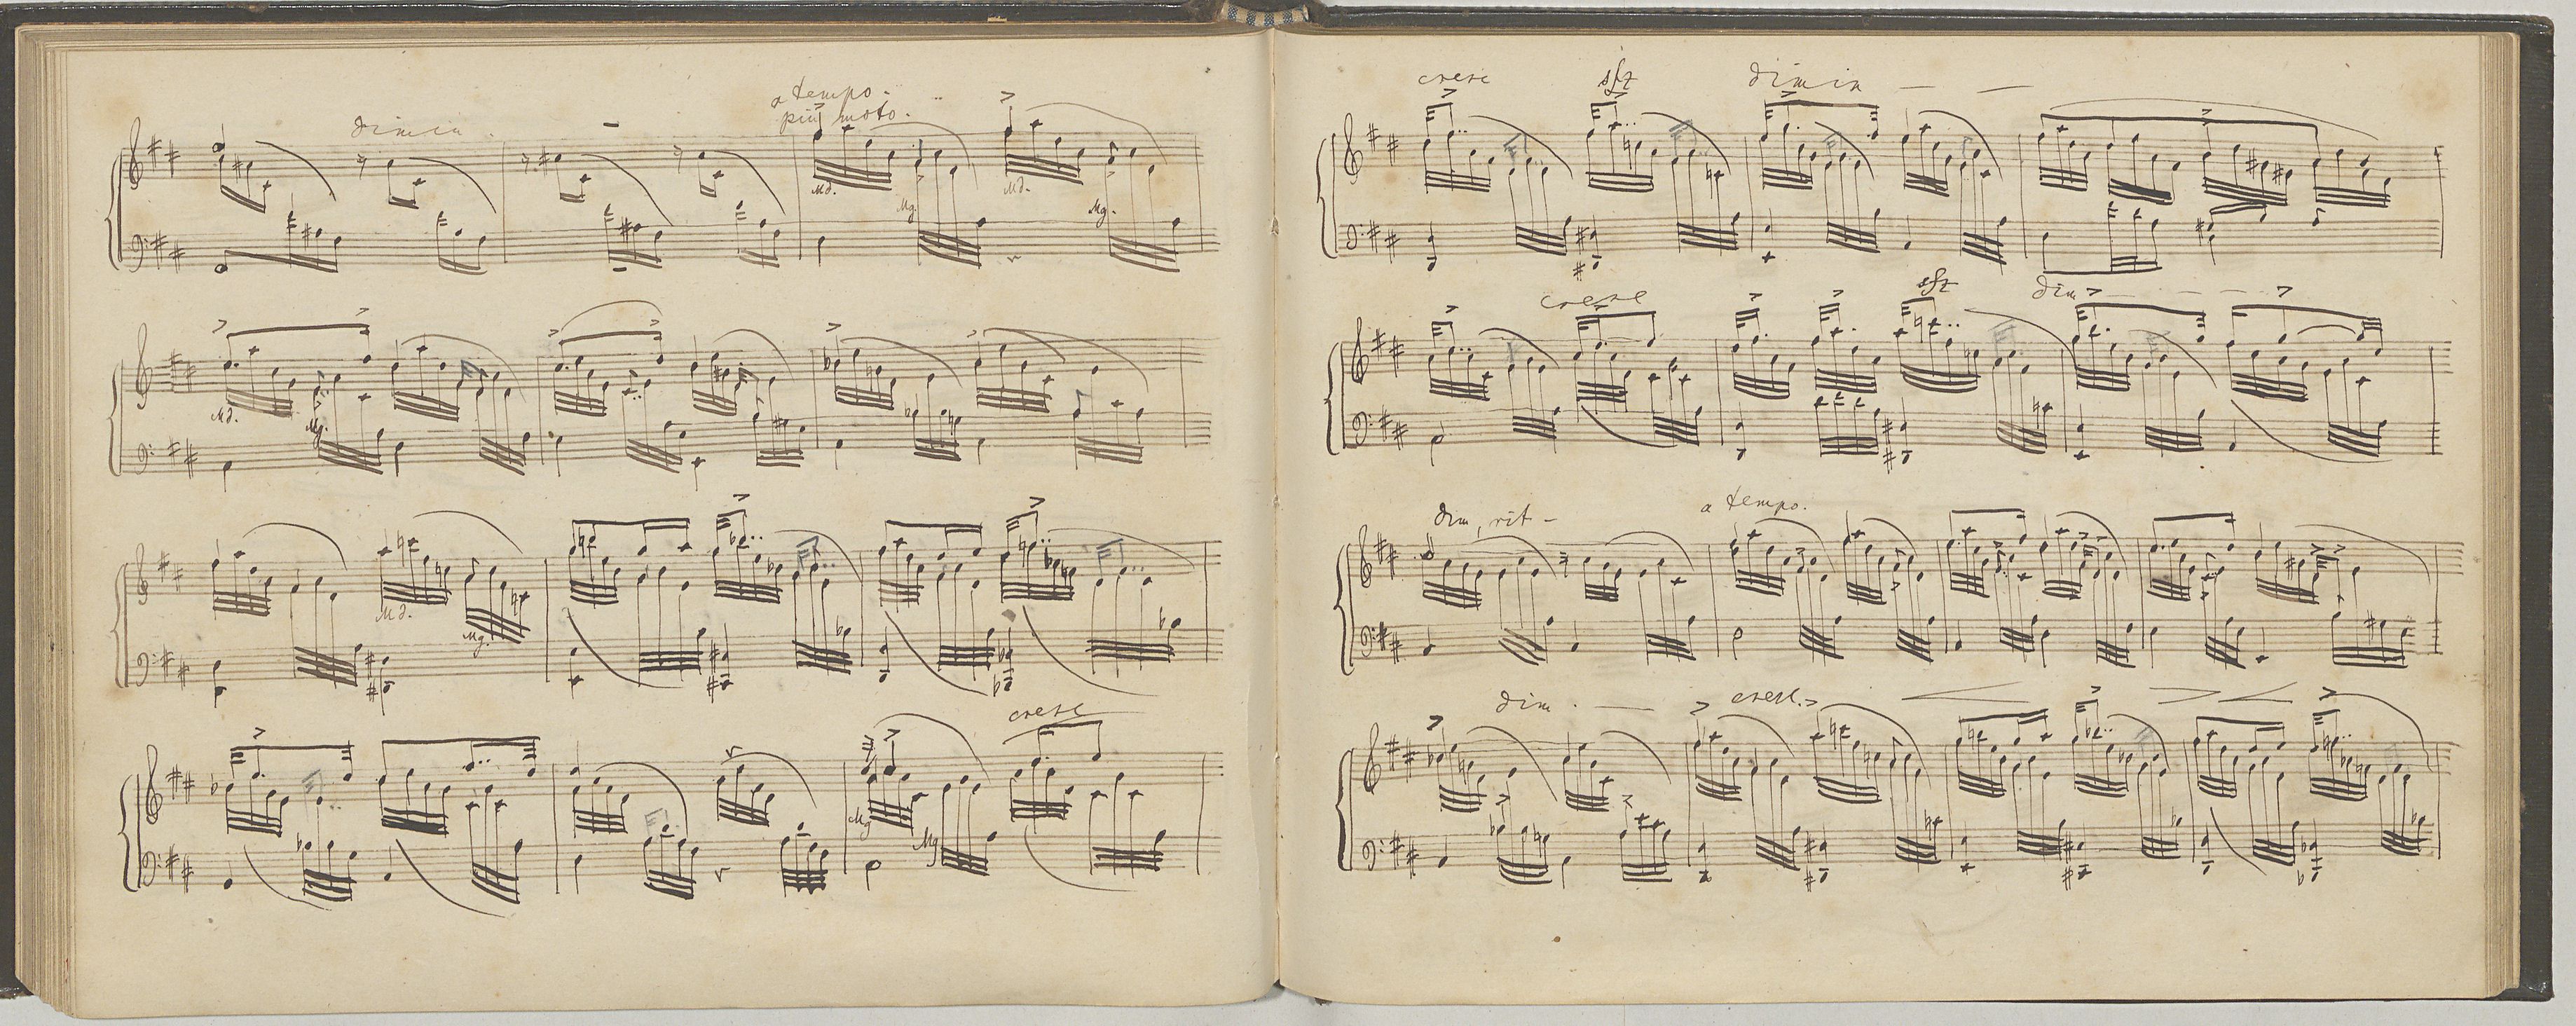 dimin.
a tempo.
più moto.
Md.
Mg
Md.
Mg.
Md.
Mg.
Md.
Mg.
cresc
Mg
Mg
cresc
sfz
dimin — —
cresc
sfz
dim — — —
dim, rit -
a tempo.
dim. —
cresc.